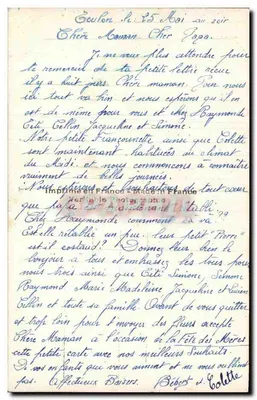 Toulon le 25 Mai au soir
Chère Maman. Cher Papa.
Je ne veux plus attendre pour
te remercier de ta petite lettre reçue
il y a huit jours Chère maman. Pour nous
ici tout va bien et nous espérons qu'il en
est de même pour vous et chez Raymonde
Cité, Collin Jacqueline et Simone.
Notre petite Françounette ainsi que Colette
sont maintenant habituées au climat
du Midi et nous commençons à connaître
vraiment de belles journées.
tout cœur
que papa
Chez Raymonde comment ça va ?
Est-elle rétablie un peu. Leur petit
est-il costaud? Donnez leur bien le
bonjour à tous et embrassez les tous pour
nous trois ainsi que Cité Simone, Simon
Raymond Marie Madeleine Jacqueline et Lucien
Collin et toute sa famille. Avant de vous quitter
et trop loin pour t'envoyer des fleurs accepte
Chère Maman à l'occasion de la Fête des Mères
cette petite carte avec nos meilleurs Souhaits
De vos enfants qui vous aiment et ne vous oublient
pas. Affectueux Baisers. Bébert et Colette